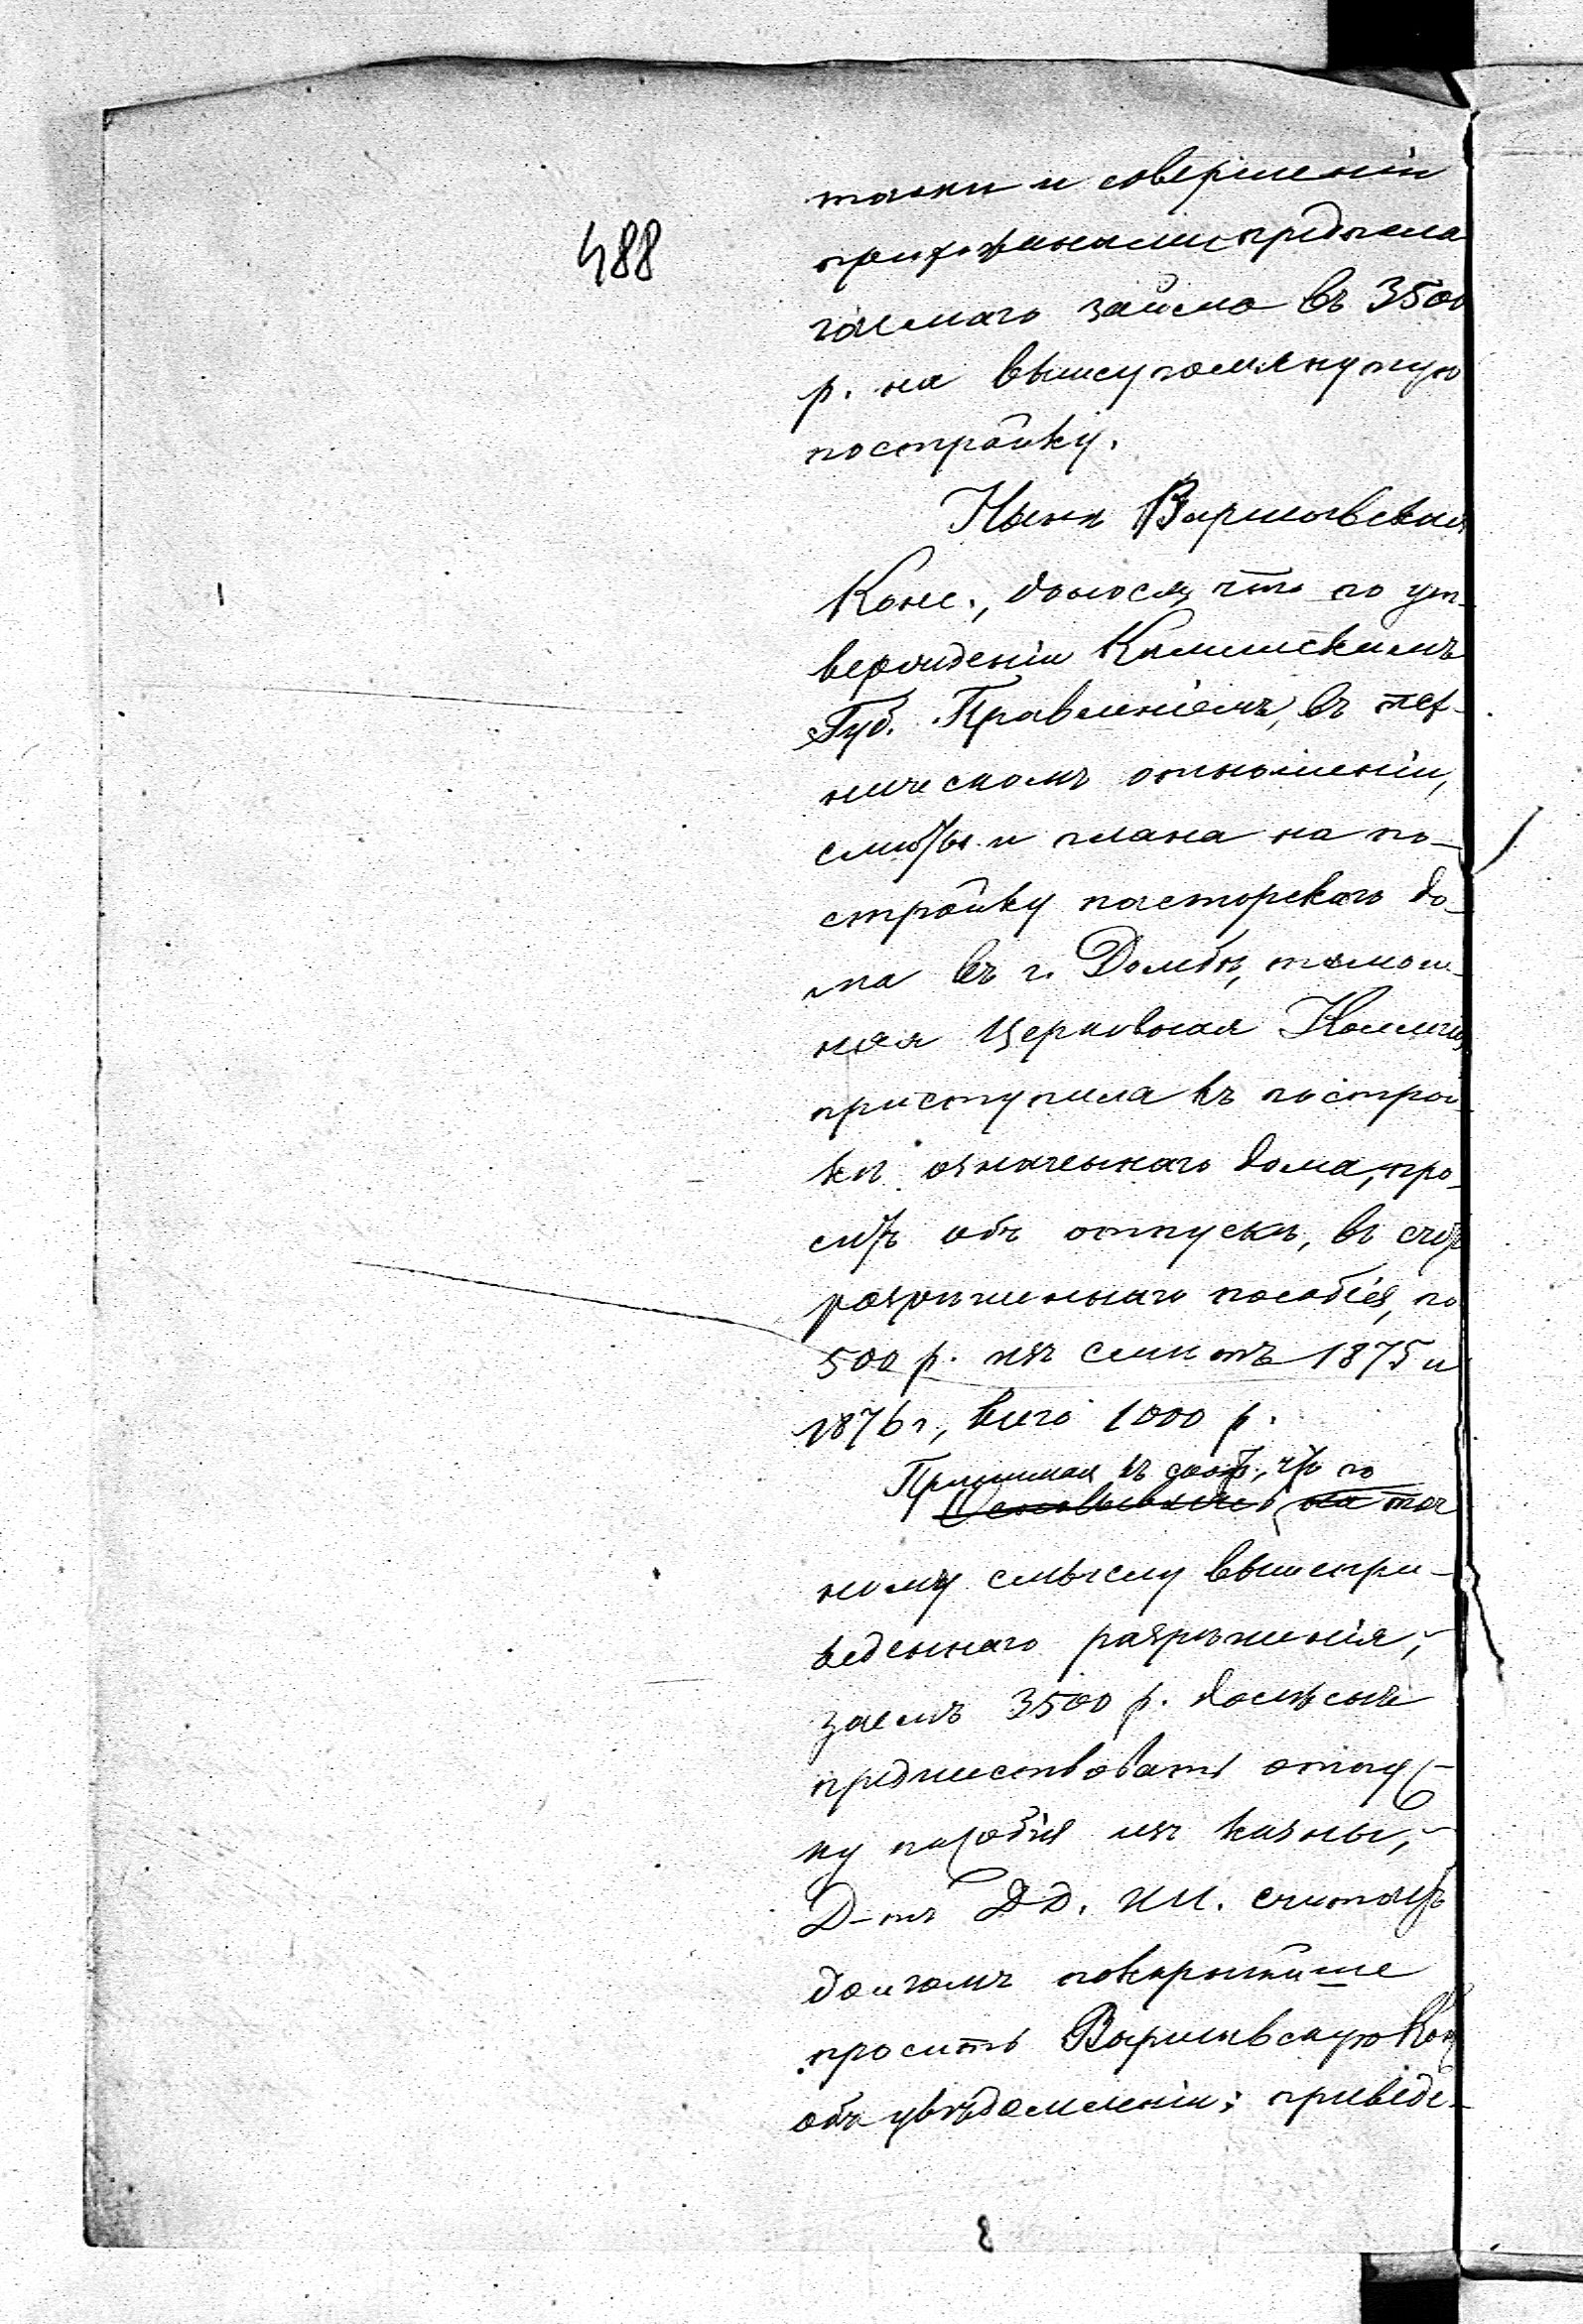 488
тании совершенiи
прихожанами предпола
гаемаго займа въ 3500
р. на вышеупомянутую
постройку.
Нынѣ Варшавская
Конс., донося, что по ут-
вержденiи Калишскимъ
Губ. Правленiемъ, въ тех-
ническомъ отношенiи,
смѣты и плана на по-
стройку пасторскаго до-
ма въ г. Домбѣ, тамош-
няя Церковная Коллегiя
приступила къ построй
кѣ означеннаго дома, про-
ситъ объ отпускѣ, въ счетъ
разрѣшеннаго пособiя, по
500 р. изъ смѣтъ 1875 и
1876 г., всего 1000 р.
Принимая въ сообр., что по
Основываясь на точ
ному смыслу вышепри-
веденнаго разрѣшенiя,
заемъ 3500 р. долженъ
предшествовать отпус-
ку пособiя изъ казны,
Д-тъ Д.Д. И.И. считаетъ
долгомъ покорнѣйше
просить Варшавскую Конс
объ увѣдомленiи: приведе-
8